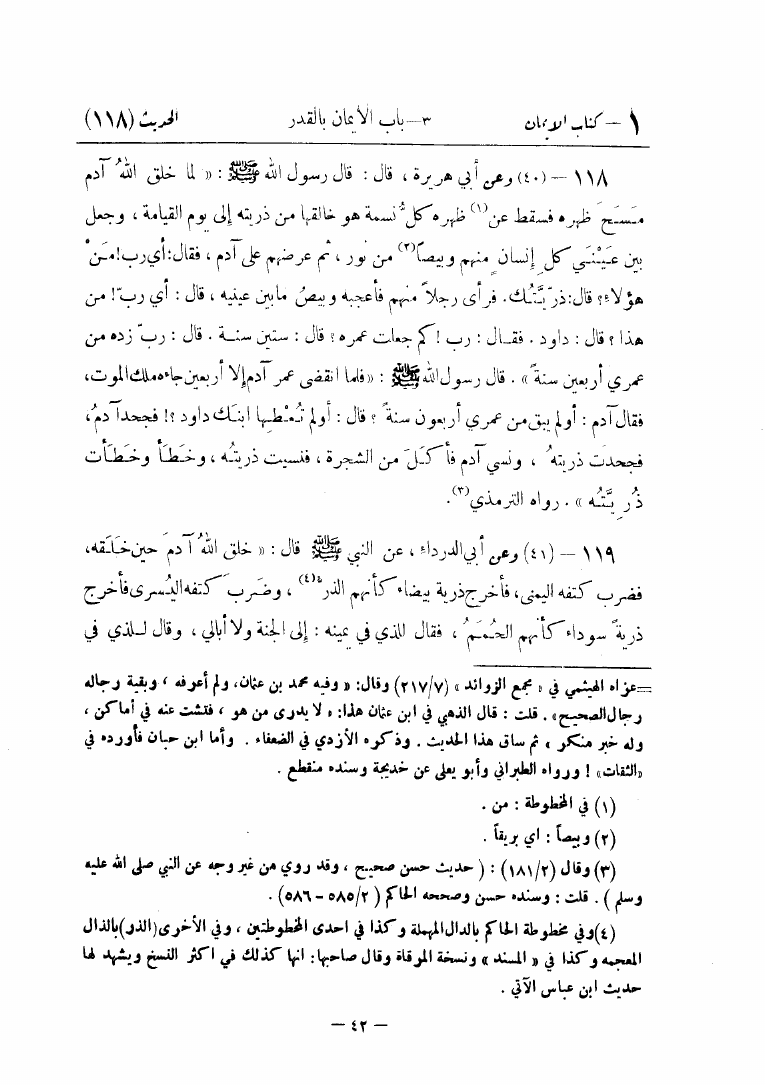 ١ – كتاب الايمان ٣–باب الأيمان بالقدر الحديث (١١٨)
١١٨ – (٤٠) وعن أبي هريرة ، قال : قال رسول الله ﷺ : « لما خلق اللهُ آدم
مَسَحَ ظهره فسقط عن(١) ظهره كلُّ نسمة هو خالقها من ذريته إلى يوم القيامة ، وجعل
بين عَيْنَي كل إنسانٍ منهم وبيصاً(٢) من نور ، ثم عرضهم على آدم ، فقال: أي رب! مَنْ
هؤلاء؟ قال: ذرّيَّتُك. فرأى رجلاً منهم فأعجبه وبيصُ مابين عينيه ، قال : أي ربّ! من
هذا ؟ قال : داود . فقال : رب ! كم جعلت عمره ؟ قال : ستين سنة . قال : ربّ زده من
عمري أربعين سنةً » . قال رسول الله ﷺ : «فلما انقضى عمر آدم إلا أربعين جاءه ملك الموت،
فقال آدم : أولم يبق من عمري أربعون سنةً ؟ قال : أولم تُعْطِها ابنَك داود ؟! فجحد آدمُ،
فجحدَت ذريتهُ ، ونسي آدم فأكَلَ من الشجرة ، فنسيت ذريتُه ، وخَطَأ وخَطَأت
ذُرِيَّتُه » . رواه الترمذي(٣).
١١٩ – (٤١) وعن أبي الدرداء ، عن النبي ﷺ قال : « خلق اللهُ آدمَ حين خَلَقه،
فضرب كتفه اليمنى، فأخرج ذرية بيضاء كأنهم الذر(٤) ، وضَربَ كتفه اليُسرى فأخرج
ذريةً سوداء كأنهم الحُمَمُ ، فقال للذي في يمينه : إلى الجنة ولا أبالي ، وقال للذي في
=عزاه الهيثمي في « مجمع الزوائد » (٢١٧/٧) وقال: « وفيه محمد بن عثمان، ولم أعرفه ، وبقية رجاله
رجال الصحيح» . قلت : قال الذهبي في ابن عثمان هذا: « لا يدرى من هو ، فتشت عنه في أماكن ،
وله خبر منكر » ثم ساق هذا الحديث . وذكره الأزدي في الضعفاء . وأما ابن حبان فأورده في
«الثقات» ! ورواه الطبراني وأبو يعلى عن خديجة وسنده منقطع .
(١) في المخطوطة : من .
(٢) وبيصاً : اي بريقاً .
(٣) وقال (١٨١/٢) : ( حديث حسن صحيح ، وقد روي من غير وجه عن النبي صلى الله عليه
وسلم ) . قلت : وسنده حسن وصححه الحاكم ( ٥٨٥/٢ – ٥٨٦) .
(٤)وفي مخطوطة الحاكم بالدال المهملة وكذا في احدى المخطوطتين ، وفي الأخرى(الذر)بالذال
المعجمه وكذا في « المسند » ونسخة المرقاة وقال صاحبها : انها كذلك في اكثر النسخ ويشهد لها
حديث ابن عباس الآتي .
– ٤٢ –